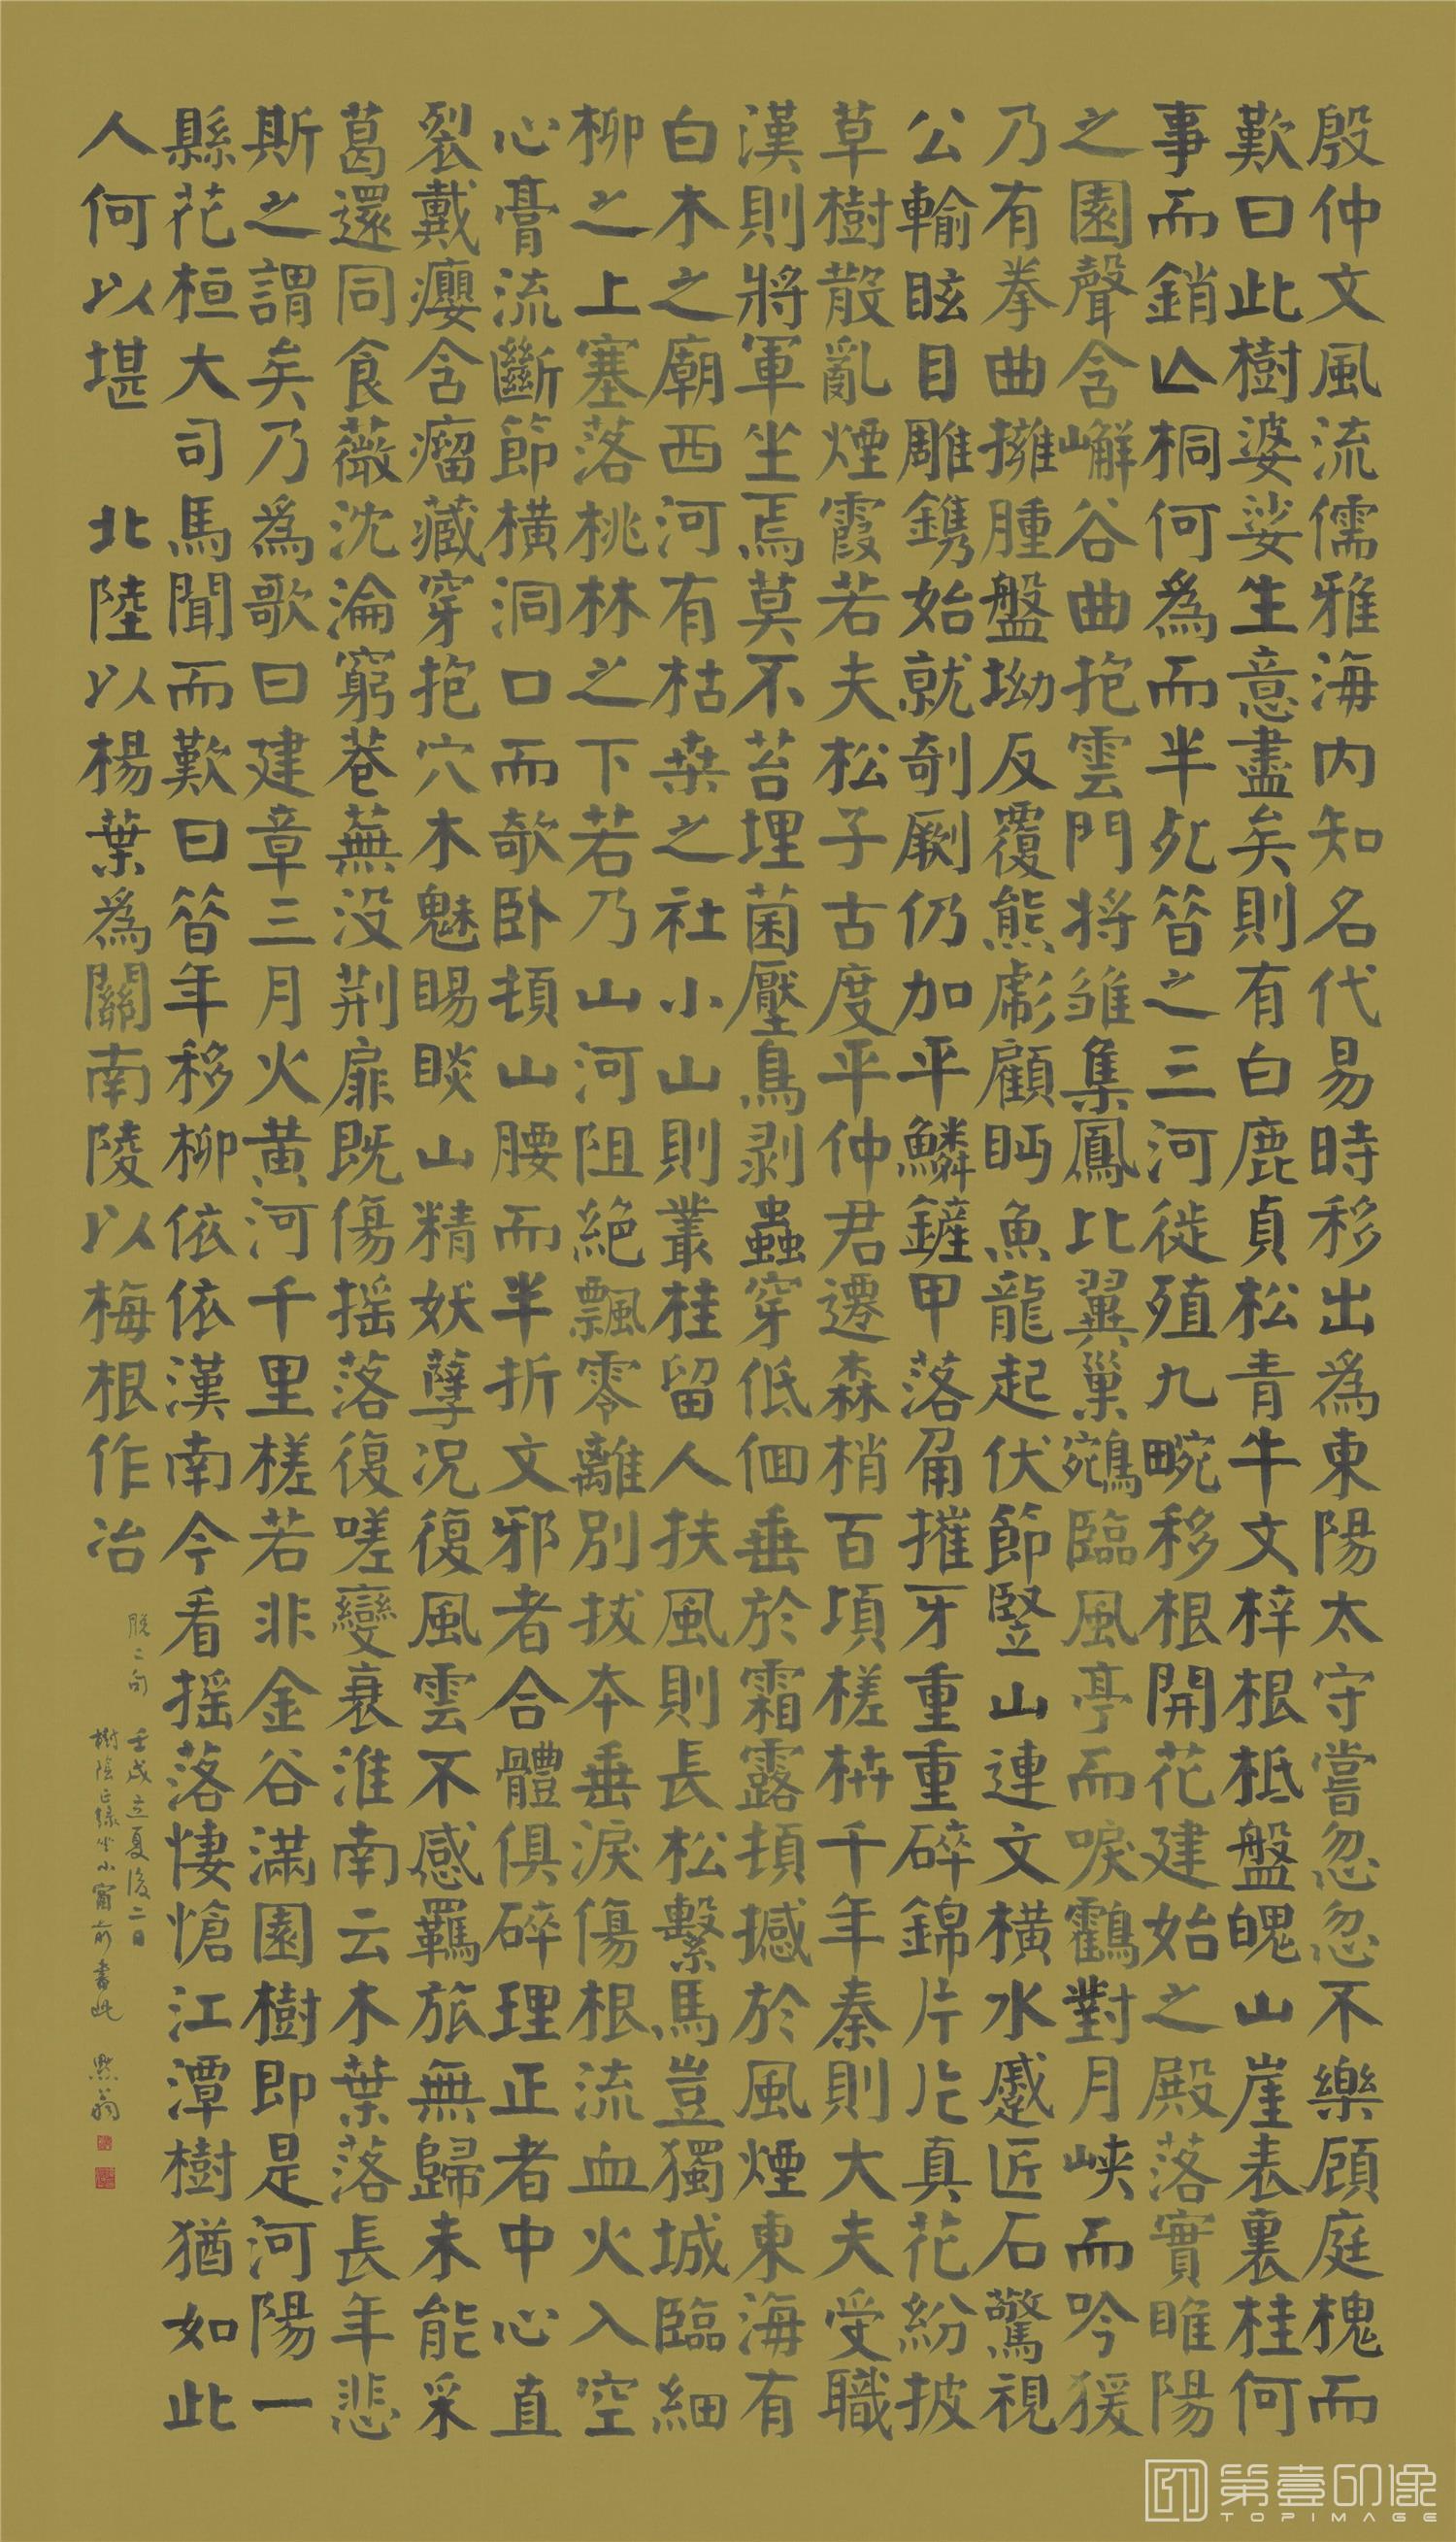 殷仲文風流儒雅海内知名代易時移出為東陽太守嘗忽忽不樂顧庭槐而
歎曰此樹婆娑生意盡矣則有白鹿貞松青牛文梓根柢盤魄山崖表裏桂何
事而銷亾桐何為而半死昝之三河徙殖九畹移根開花建始之殿落實睢陽
之園聲含嶰谷曲抱雲門將雛集鳳比翼巢鵷臨風亭而唳鶴對月峽而吟猨
乃有拳曲擁腫盤坳反覆熊彪顧眄魚龍起伏節豎山連文橫水蹙匠石驚視
公輸眩目雕鐫始就剞劂仍加平鱗鏟甲落角摧牙重重碎錦片片真花紛披
草樹散亂煙霞若夫松子古度平仲君遷森梢百頃槎枿千年秦則大夫受職
漢則將軍坐焉莫不苔埋菌壓鳥剥蟲穿低佪垂於霜露頓撼於風煙東海有
白木之廟西河有枯桒之社小山則叢桂留人扶風則長松繫馬豈獨城臨細
柳之上塞落桃林之下若乃山河阻絕飄零離別拔本垂淚傷根流血火入空
心膏流斷節橫洞口而欹臥頓山腰而半折文邪者合體俱碎理正者中心直
裂戴癭含瘤藏穿抱穴木魅睗睒山精妖孽況復風雲不感羈旅無歸未能采
葛還同食薇沈淪窮巷蕪没荊扉既傷搖落復嗟變衰淮南云木葉落長年悲
斯之謂矣乃為歌曰建章三月火黃河千里槎若非金谷滿園樹即是河陽一
縣花桓大司馬聞而歎曰昝年移柳依依漢南今看搖落悽愴江潭樹猶如此
人何以堪 北陸以楊葉為關南陵以梅根作冶
脱二句
壬戌立夏後二日
樹陰正緑坐小窗前書此 默翁
第壹印像
TOPIMAGE